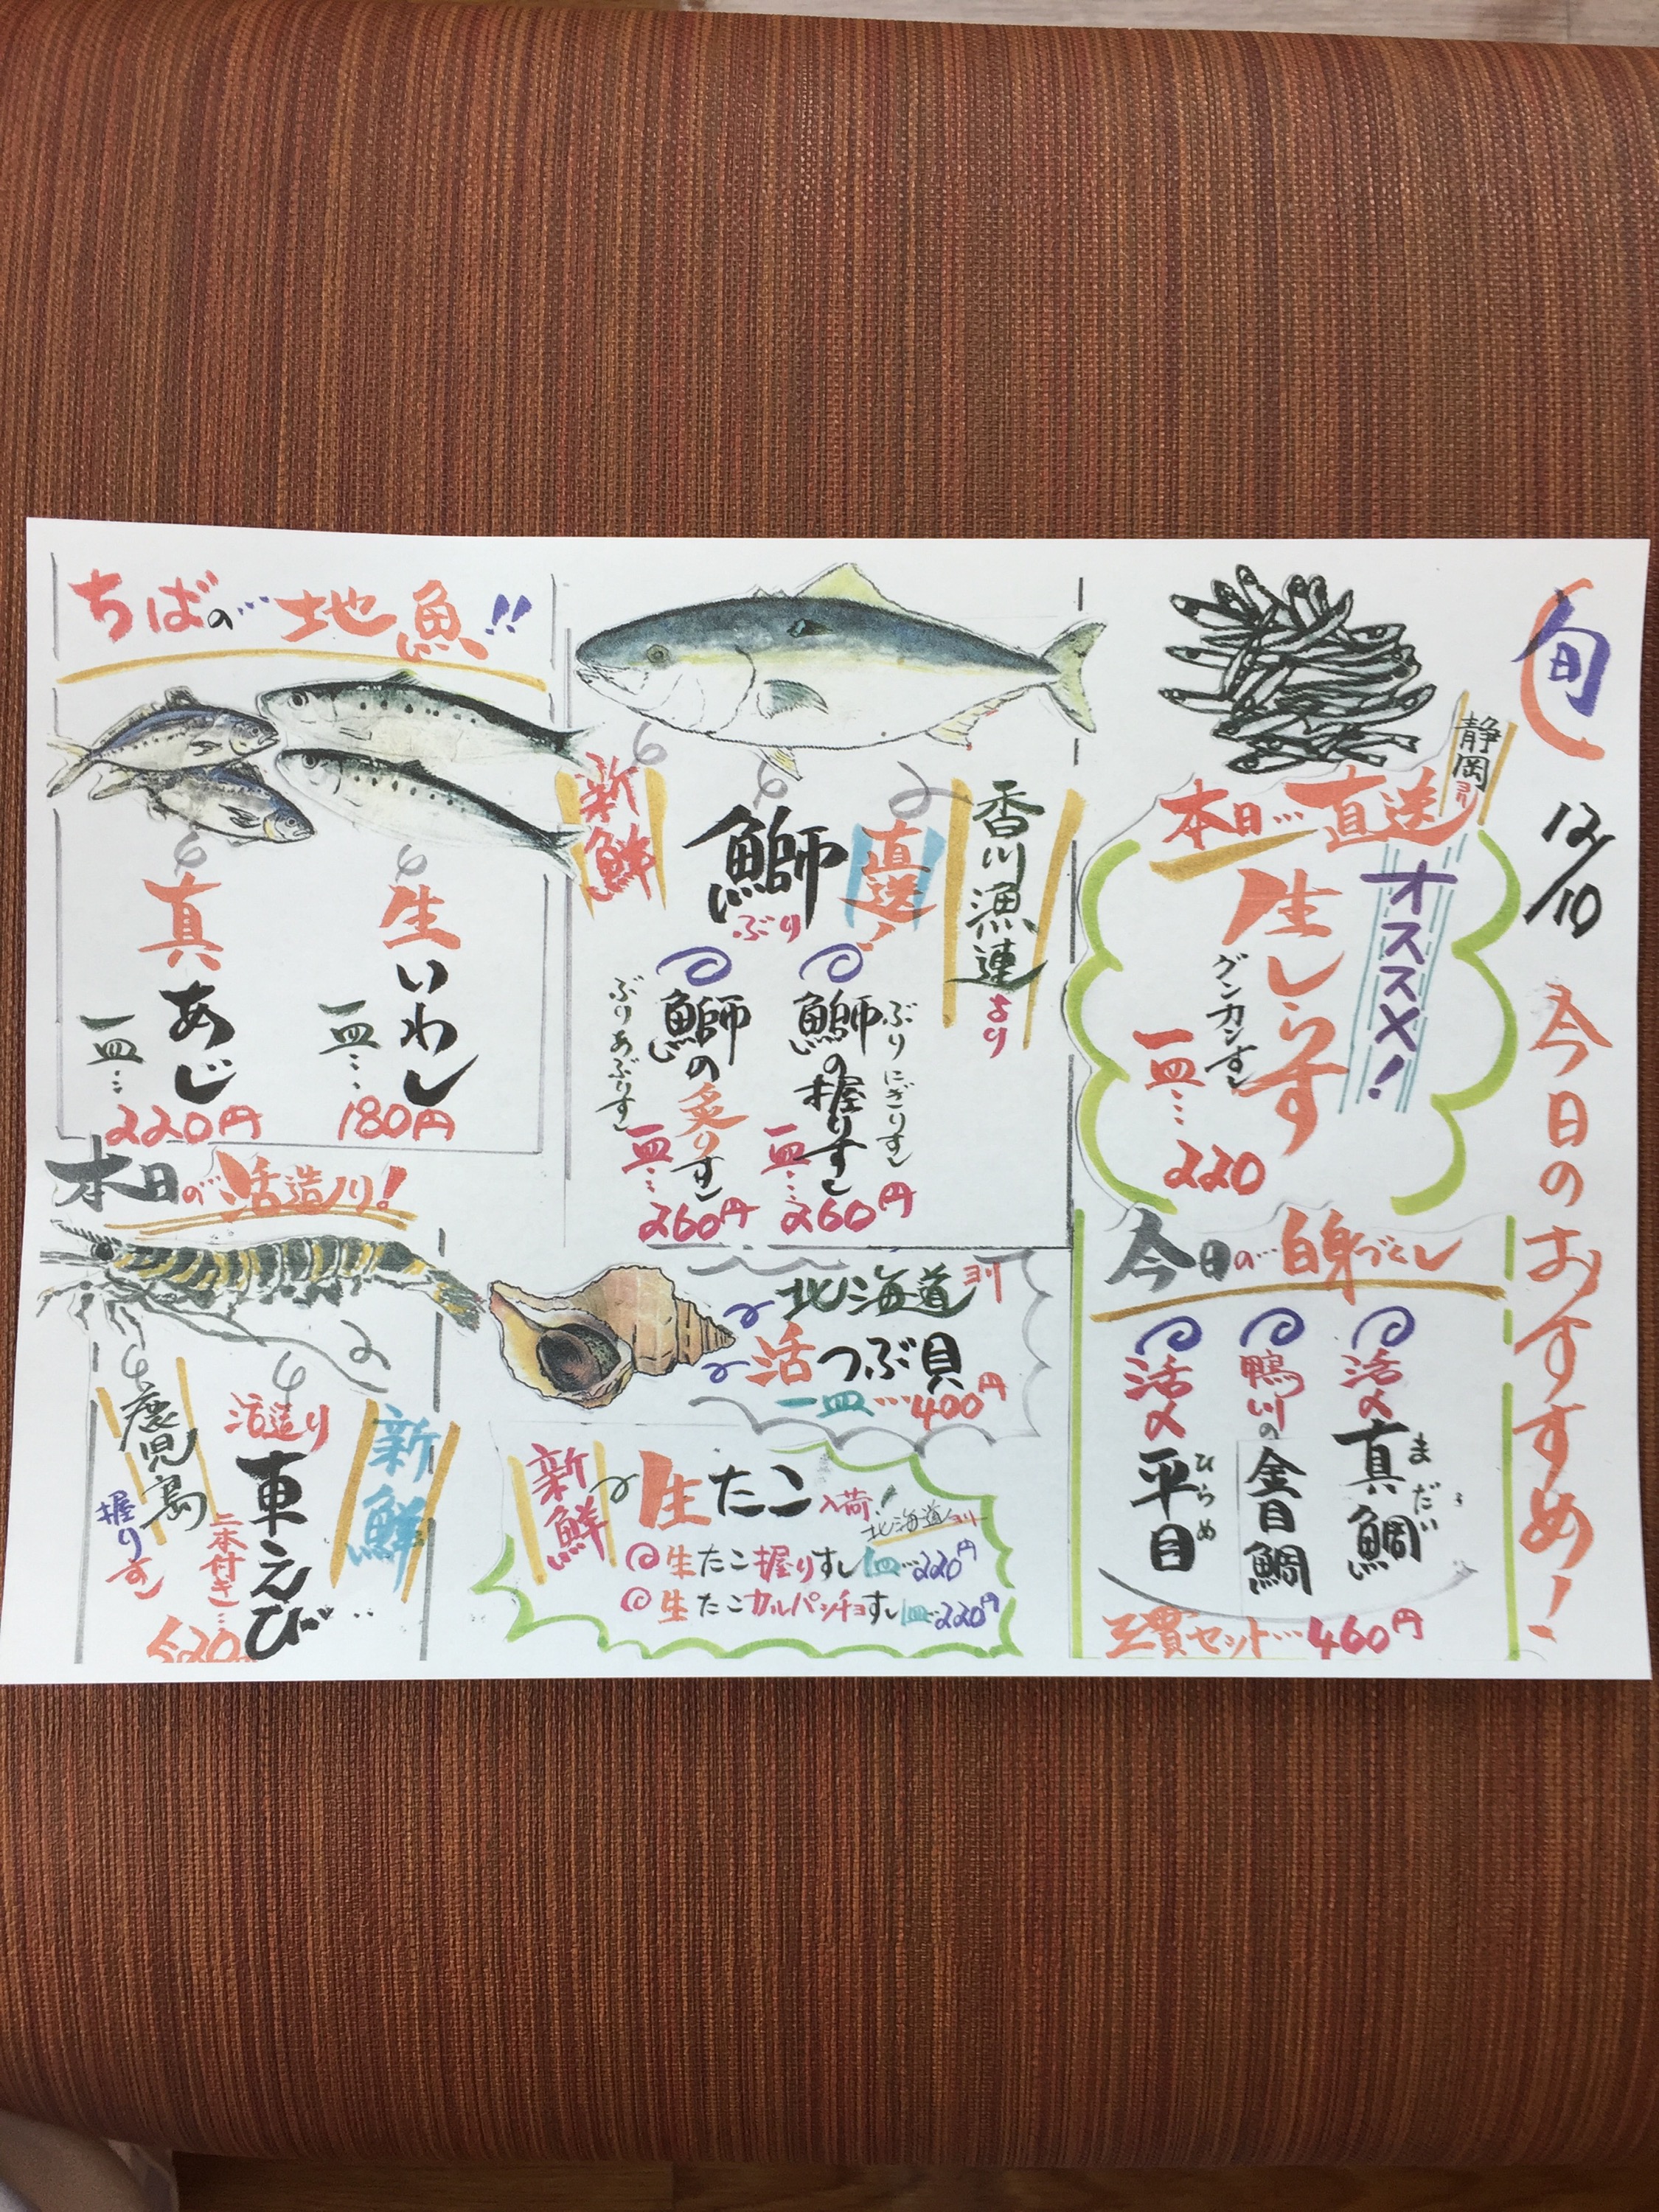 旬
12/10
今日のおすすめ!
静岡ヨリ
本日…直送
オススメ!
生しらす
グンカンすし
一皿…
220
今日の…白身づくし
活〆
真鯛
まだい
鴨川の
金目鯛
活〆
平目
ひらめ
三貫セット…460円
香川漁連より
直送!
鰤
ぶり
新鮮
鰤の握りすし
ぶりにぎりすし
一皿…
260円
鰤の炙りすし
ぶりあぶりすし
一皿…
260円
北海道ヨリ
活つぶ貝
一皿…400円
新鮮
生たこ入荷!
北海道ヨリ
生たこ握りすし一皿…220円
生たこカルパッチョすし一皿…220円
ちばの…地魚!!
生いわし
一皿…
180円
真あじ
一皿…
220円
本日の活造り!
新鮮
活造り
車えび
二本付き…
520円
鹿児島
握りすし